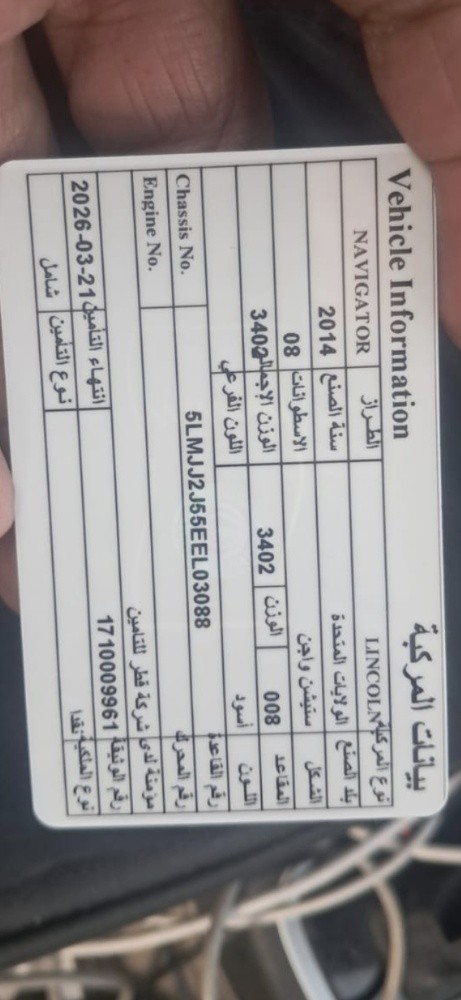 Vehicle Information بيانات المركبة
NAVIGATOR الطراز LINCOLN نوع المركبة
2014 سنة الصنع الولايات المتحدة بلد الصنع
08 الاسطوانات ستيشن واجن الشكل
3402 الوزن الإجمالي 3402 الوزن 008 المقاعد
اللون الفرعي أسود اللون
Chassis No. 5LMJJ2J55EEL03088 رقم القاعدة
Engine No. رقم المحرك
مؤمنة لدى شركة قطر للتامين
2026-03-21 انتهاء التأمين 1710009961 رقم الوثيقة
شامل نوع التأمين نوع الملكية نقدا